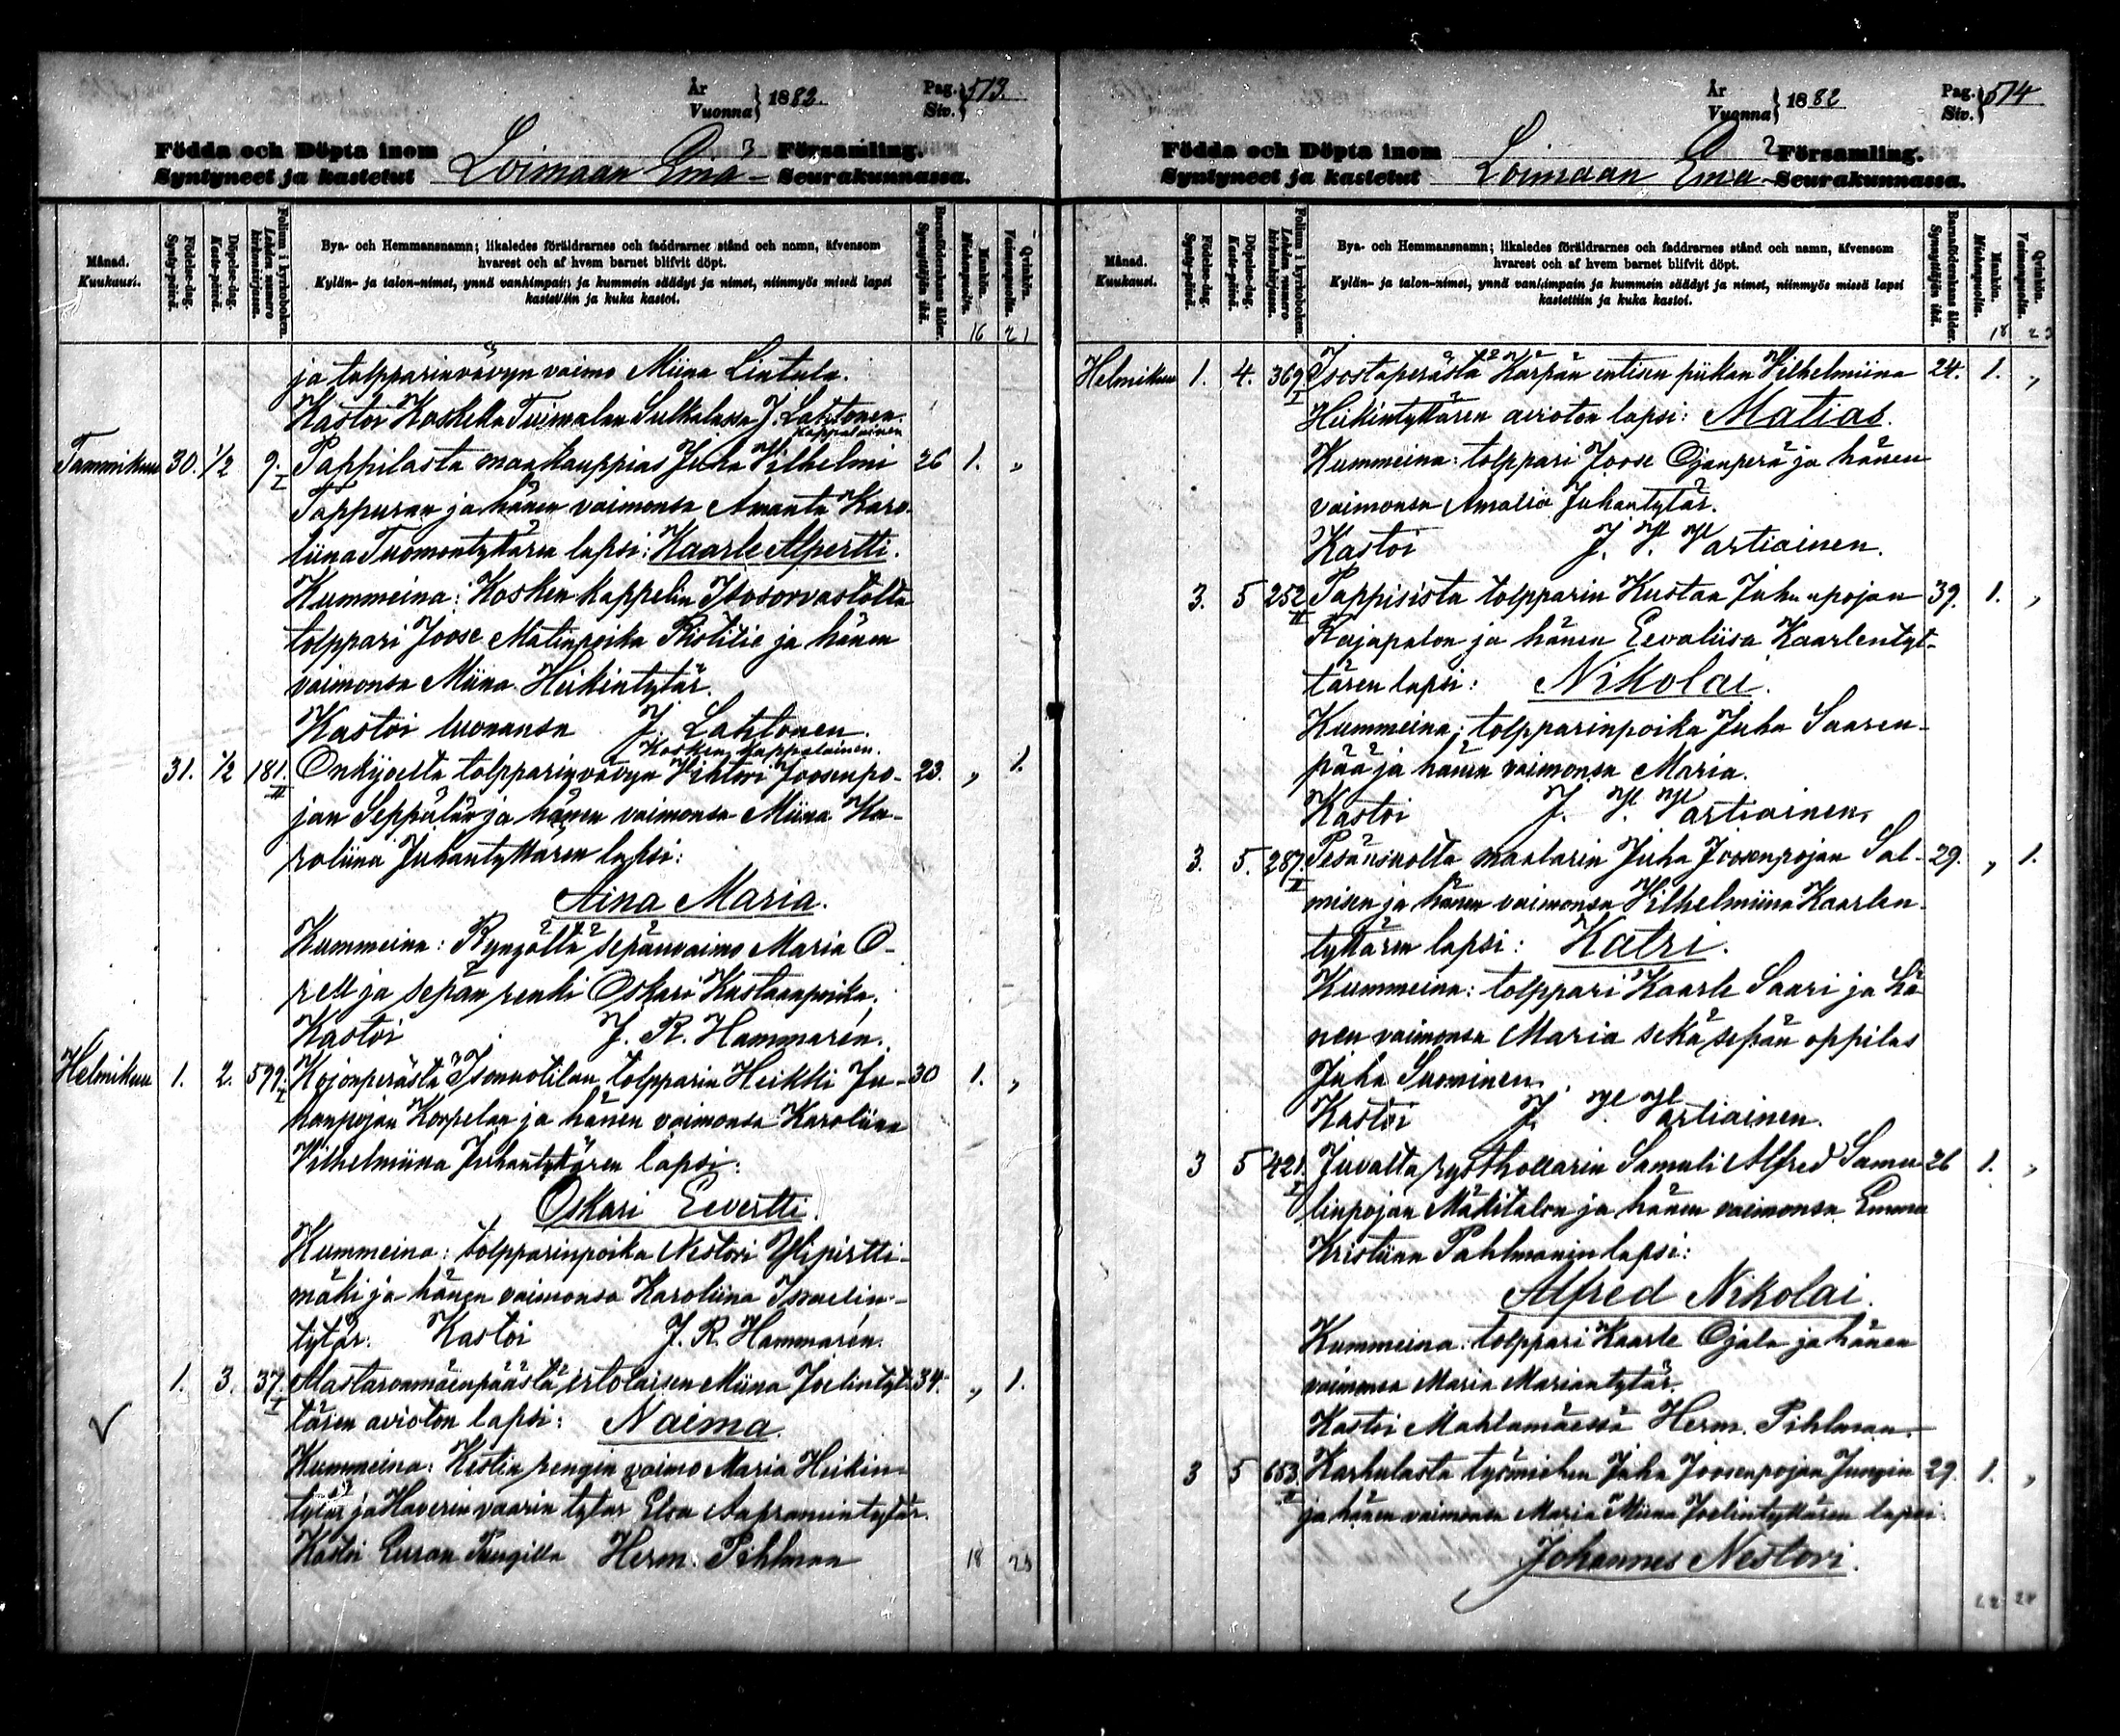 År
Vuonna } 1882.
Pag.
Siv. } 513.
Födda och Döpta inom Församling.
Syntyneet ja kastetut Loimaan Emä- Seurakunnassa.
Månad.
Kuukausi.
Födelse-dag.
Synty-päivä.
Döpelse-dag.
Kaste-päivä.
Folium i kyrkoboken.
Lehden numero kirkonkirjassa.
Bya- och Hemmansnamn; likaledes föräldrarnes och faddrarnes stånd och namn, äfvensom
hvarest och af hvem barnet blifvit döpt.
Kylän- ja talon-nimet, ynnä vanhimpain ja kummein säädyt ja nimet, niinmyös missä lapsi
kastettiin ja kuka kastoi.
Barnaföderskans ålder.
Synnyttäjän ikä.
Mankön.
Miehenpuolia.
Qvinkön.
Vaimonpuolia.
16 21
ja tolpparinvävyn vaimo Miina Lintula.
Kastoi Koskella Tuimalan Sulkalassa J. Lahtonen.
Kappalainen
Tammikuu 30. 1/2 9. I Pappilasta maakauppias Juha Vilhelmi 26 1. „
Tappuran ja hänen vaimonsa Amanta Karo-
liina Tuomontyttären lapsi: Kaarle Alpertti.
Kummeina: Kosken kappelin Isosorvastolta
tolppari Joose Matinpoika Ristitie ja hänen
vaimonsa Miina Heikintytär.
Kastoi luonansa J. Lahtonen.
Kosken kappalainen.
31. 1/2 181. II Onkijoelta tolpparinvävyn Vihtori Joosenpo- 23. „ 1.
jan Seppälän ja hänen vaimonsa Miina Ka-
roliina Juhantyttären lapsi:
Aina Maria.
Kummeina: Ryngöltä sepänvaimo Maria O-
rell ja sepän renki Oskari Kustaanpoika.
Kastoi J. R. Hammarén.
Helmikuu 1. 2. 599. I Kojonperästä Isonuotilan tolpparin Heikki Ju- 30 1. „
hanpojan Korpelan ja hänen vaimonsa Karoliina
Vilhelmiina Juhantyttären lapsi:
Oskari Eevertti.
Kummeina: tolpparinpoika Nestori Ylipirtti-
mäki ja hänen vaimonsa Karoliina Israelin-
tytär. Kastoi J. R. Hammarén.
1. 3. 37. I Mastaroanmäenpäästä irtolaisen Miina Joelintyt- 34. „ 1.
tären avioton lapsi: Naima.
Kummeina: Kestin rengin vaimo Maria Heikin-
tytär ja Haverin vaarin tytär Elsa Aapramintytär.
Kastoi Herm. Pihlman
18 23
År
Vuonna } 1882
Pag.
Siv. } 514
Födda och Döpta inom Församling.
Syntyneet ja kastetut Loimaan Emä- Seurakunnassa.
Månad.
Kuukausi.
Födelse-dag.
Synty-päivä.
Döpelse-dag.
Kaste-päivä.
Folium i kyrkoboken.
Lehden numero kirkonkirjassa.
Bya- och Hemmansnamn; likaledes föräldrarnes och faddrarnes stånd och namn, äfvensom
hvarest och af hvem barnet blifvit döpt.
Kylän- ja talon-nimet, ynnä vanhimpain ja kummein säädyt ja nimet, niinmyös missä lapsi
kastettiin ja kuka kastoi.
Barnaföderskans ålder.
Synnyttäjän ikä.
Mankön.
Miehenpuolia.
Qvinkön.
Vaimonpuolia.
18 23
Helmikuu 1. 4. 369 I Isostaperästä Kärpän entisen piikan Vilhelmiina 24. 1. „
Heikintyttären avioton lapsi: Matias.
Kummeina: tolppari Joose Ojanperä ja hänen
vaimonsa Amalia Juhantytär.
Kastoi J. V. Vartiainen.
3. 5 252 II Pappisista tolpparin Kustaa Juhanpojan 39. 1. „
Rajapalon ja hänen Eevaliisa Kaarlentyt-
tären lapsi: Nikolai.
Kummeina: tolpparinpoika Juha Saaren-
pää ja hänen vaimonsa Maria.
Kastoi J. V. Vartiainen.
3. 5. 287. II Pesänsuolta maalarin Juha Joosenpojan Sal- 29. „ 1.
misen ja hänen vaimonsa Vilhelmiina Kaarlen-
tyttären lapsi: Katri.
Kummeina: tolppari Kaarle Saari ja hä
nen vaimonsa Maria sekä sepän oppilas
Juha Suominen.
Kastoi J. V. Vartiainen.
3 5 421. I Juvalta rysthollarin Samuli Alfred Samu- 26 1. „
linpojan Mäkitalon ja hänen vaimonsa Emma
Kristiina Pahlmanin lapsi:
Alfred Nikolai.
Kummeina: tolppari Kaarle Ojala ja hänen
vaimonsa Maria Mariantytär.
Kastoi Mahlamäessä Herm. Pihlman.
3 5 653. II Karhulasta työmiehen Juha Joosenpojan Jungin 29. 1. „
ja hänen vaimonsa Maria Miina Joelintyttären lapsi:
Johannes Nestori.